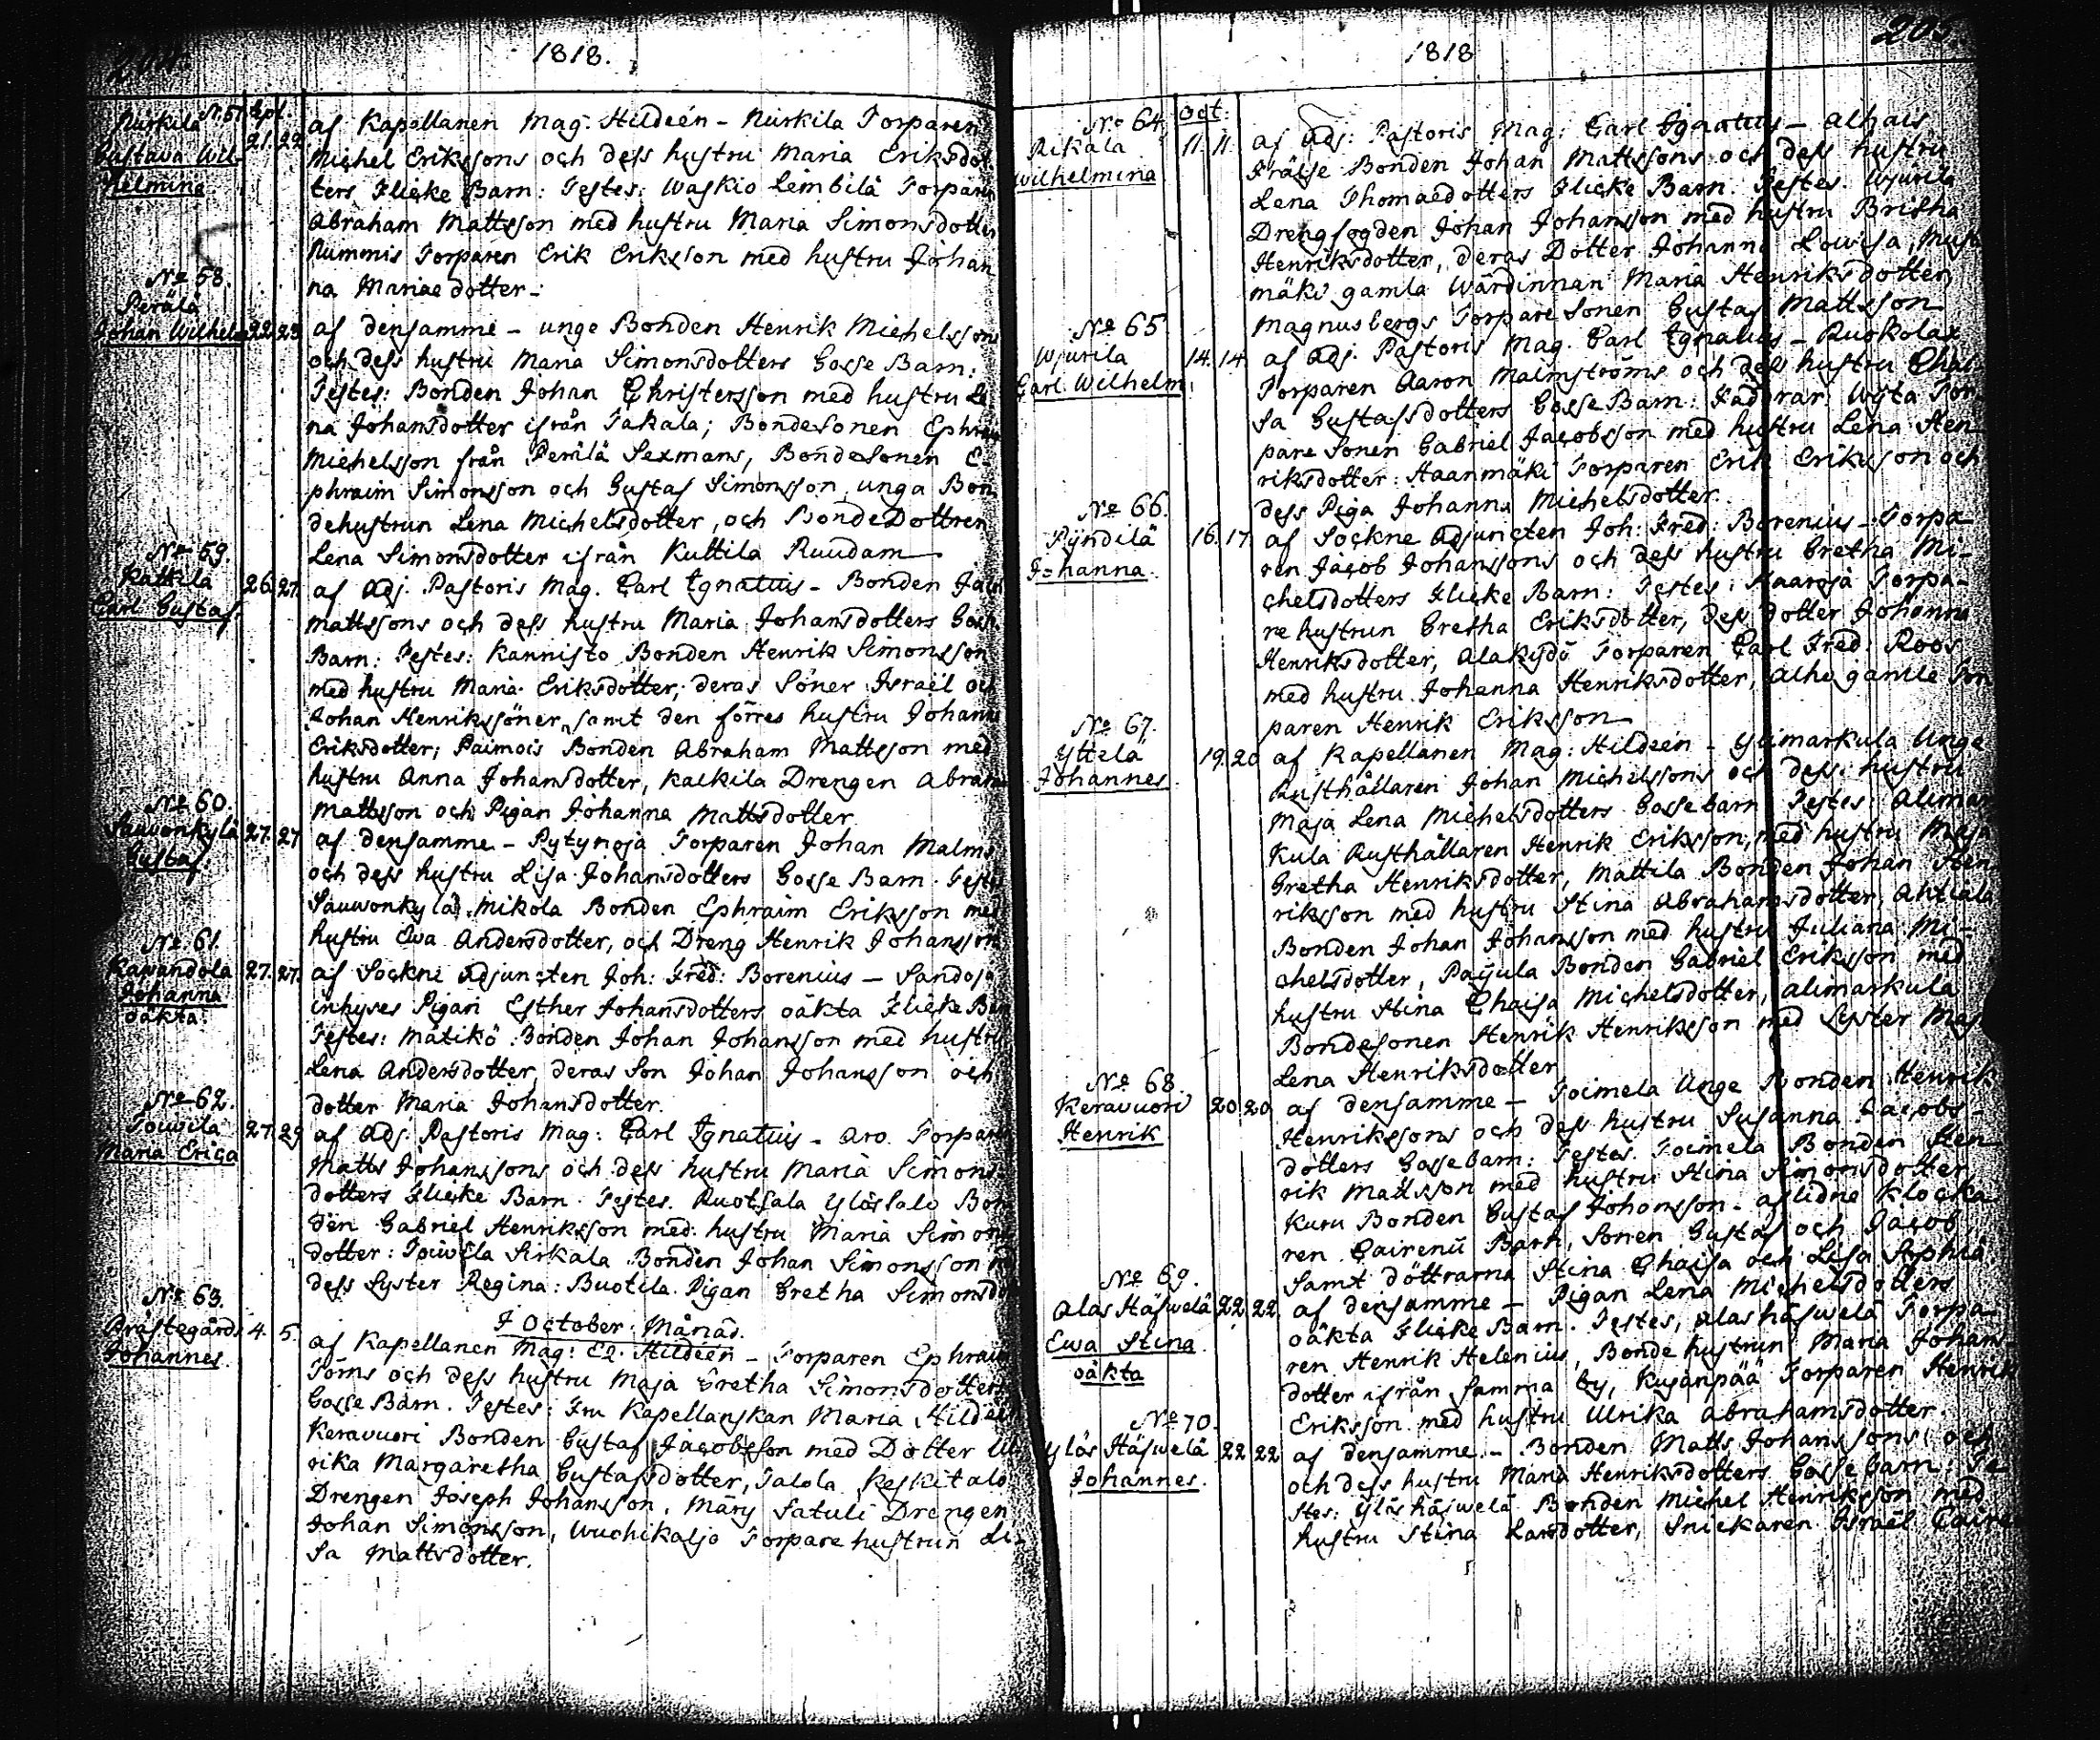 204.
1818.
Nurkila No 57 Sept.
Gustava Wil-
helmina
21. 22
af Kapellanen Mag. Hildeén - Nurkila Torparen
Michel Erikssons och dess hustru Maria Eriksdot
ters Flicke Barn: Testes: Waskio Leimbilä Torparen
Abraham Mattsson med hustru Maria Simonsdotter
Nummis Torparen Erik Eriksson med hustru Johan
na Mariae dotter -
No 58.
Perälä
Johan Wilhelm 22. 23
af densamme - unge Bonden Henrik Michelssons
och dess hustru Maria Simonsdotters Gosse Barn:
Testes: Bonden Johan Christersson med hustru Le
na Johansdotter ifrån Takala; BondeSonen Ephraim
Michelsson från Perälä Sexmans, BondeSonen E-
phraim Simonsson och Gustaf Simonsson, unga Bon
dehustrun Lena Michelsdotter, och BondeDottren
Lena Simonsdotter ifrån Kuttila Ruudam
No 59.
Kalkila
Carl Gustaf.
26. 27.
af Adj. Pastoris Mag. Carl Ignatius - Bonden Jacob
Mattssons och dess hustru Maria Johansdotters Gosse
Barn: Testes: Kannisto Bonden Henrik Simonsson
med hustru Maria Eriksdotter; deras Söner Israël och
Johan Henrikssöner, samt den förres hustru Johanna
Eriksdotter; Paimois Bonden Abraham Mattsson med
hustru Anna Johansdotter, Kalkila Drengen Abraham
Mattsson och Pigan Johanna Mattsdotter
No 60.
Sauvonkylä
Gustaf
27. 27
af densamme - Pytynoja Torparen Johan Malms
och dess hustru Lisa Johansdotters Gosse Barn. Testes
Sauwonkylä Mikola Bonden Ephraim Eriksson med
hustru Ewa Andersdotter, och Dreng Henrik Johansson
No 61.
Kawandola
Johanna
oäkta.
27. 27.
af Sockne Adjuncten Joh: Fred: Borenius - Sandoja
inhyses Pigan Esther Johansdotters oäkta Flicke Barn
Testes: Mätikö Bonden Johan Johansson med hustru
Lena Andersdotter, deras Son Johan Johansson och
dotter Maria Johansdotter.
No 62.
Touwila
Maria Erica
27. 29
af Adj. Pastoris Mag: Carl Ignatius - Aro Torparen
Matts Johanssons och dess hustru Maria Simons
dotters Flicke Barn. Testes. Ruotsala Ylössalo Bon
den Gabriel Henriksson med hustru Maria Simons
dotter: Touwila Sirkala Bonden Johan Simonsson
dess Syster Regina: Buotila Pigan Gretha Simonsdot
No 63.
Prästegårds
Johannes
4. 5.
I October Månad.
af Kapellanen Mag: Hildeén - Torparen Ephraim
Töms och dess hustru Maja Gretha Simonsdotters
Gosse Barn. Testes: Fru Kapellanskan Maria Hildeén
Keravuori Bonden Gustaf Jacobsson med Dotter Ul
rika Margaretha Gustafsdotter, Talola Keskitalo
Drengen Joseph Johansson. Märy Satuli Drengen
Johan Simonsson, Wuohikaljo Torpare hustrun Li-
sa Mattsdotter.
205.
1818
No 64.
Rikala
Wilhelmina
Oct.
11. 11.
af Adj: Pastoris Mag: Carl Ignatius - Alhais
Frälse Bonden Johan Mattssons och dess hustru
Lena Thomaedotters Flicke Barn. Testes. Wjurila
Drengfogden Johan Johansson med hustru Britha
Henriksdotter, deras Dotter Johanna Lowisa,
mäki gamla Wärdinnan Maria Henriksdotter
Magnusbergs Torpare Sonen Gustaf Mattsson
No 65.
Wjurila
Carl Wilhelm.
14. 14
af Adj. Pastoris Mag. Carl Ignatius - Ruokolax
Torparen Aaron Malmströms och dess hustru Chai
sa Gustafsdotters Gosse Barn: Faddrar: Wyta Tor
pare Sonen Gabriel Jacobsson med hustru Lena Hen
riksdotter: Haanmäki Torparen Erik Eriksson och
dess Piga Johanna Michelsdotter.
No 66.
Pyndilä
Johanna.
16. 17.
af Sockne Adjuncten Joh: Fred: Borenius - Torpa
ren Jacob Johanssons och dess hustru Gretha Mi-
chelsdotters Flicke Barn: Testes: Haaroja Torpa-
re hustrun Gretha Eriksdotter, dess dotter Johanna
Henriksdotter, Alakydö Torparen Carl Fred: Roos
med hustru Johanna Henriksdotter, Alhe gamle Tor
paren Henrik Eriksson
No 67.
Yttelä
Johannes
19. 20
af Kapellanen Mag: Hildeén - Ylimarkula Unge
Rusthållaren Johan Michelssons och dess hustru
Maja Lena Michelsdotters Gossebarn Testes: Alimar
kula Rusthållaren Henrik Eriksson, med hustru Maja
Gretha Henriksdotter, Mattila Bonden Johan Hen
riksson med hustru Stina Abrahamsdotter, Anttala
Bonden Johan Johansson med hustru Juliana Mi-
chelsdotter, Paijula Bonden Gabriel Eriksson med
hustru Stina Chaisa Michelsdotter, Alimarkula
Bondesonen Henrik Henriksson med Syster Maja
Lena Henriksdotter
No 68.
Keravuori
Henrik
20. 20
af densamme - Toimela Unge Bonden Henrik
Henrikssons och dess hustru Susanna Jacobs-
dotters Gossebarn: Testes. Toimela Bonden Hen
rik Mattsson med hustru Stina Simonsdotter
Kuru Bonden Gustaf Johansson - aflidne Klocka
ren Cairenii Barn, Sonen Gustaf och Jacob
Samt döttrarna Stina Chaisa och Lisa Sophia
No 69.
Alas Häswelä
Ewa Stina
oäkta
22. 22.
af densamme - Pigan Lena Michelsdotters
oäkta Flicke Barn. Testes, Alashäswelä Torpa-
ren Henrik Helenius, Bonde hustrun Maria Johans
dotter ifrån samma by, Kusanpää Torparen Henrik
Eriksson med hustru Ulrika Abrahamsdotter.
No 70.
Ylös Häswelä
Johannes.
22 22
af densamme - Bonden Matts Johanssons och
och dess hustru Maria Henriksdotters Gosse barn: Te
stes: Ylöshäswelä Bonden Michel Henriksson med
hustru Stina Larsdotter, Snickaren Israël Caire